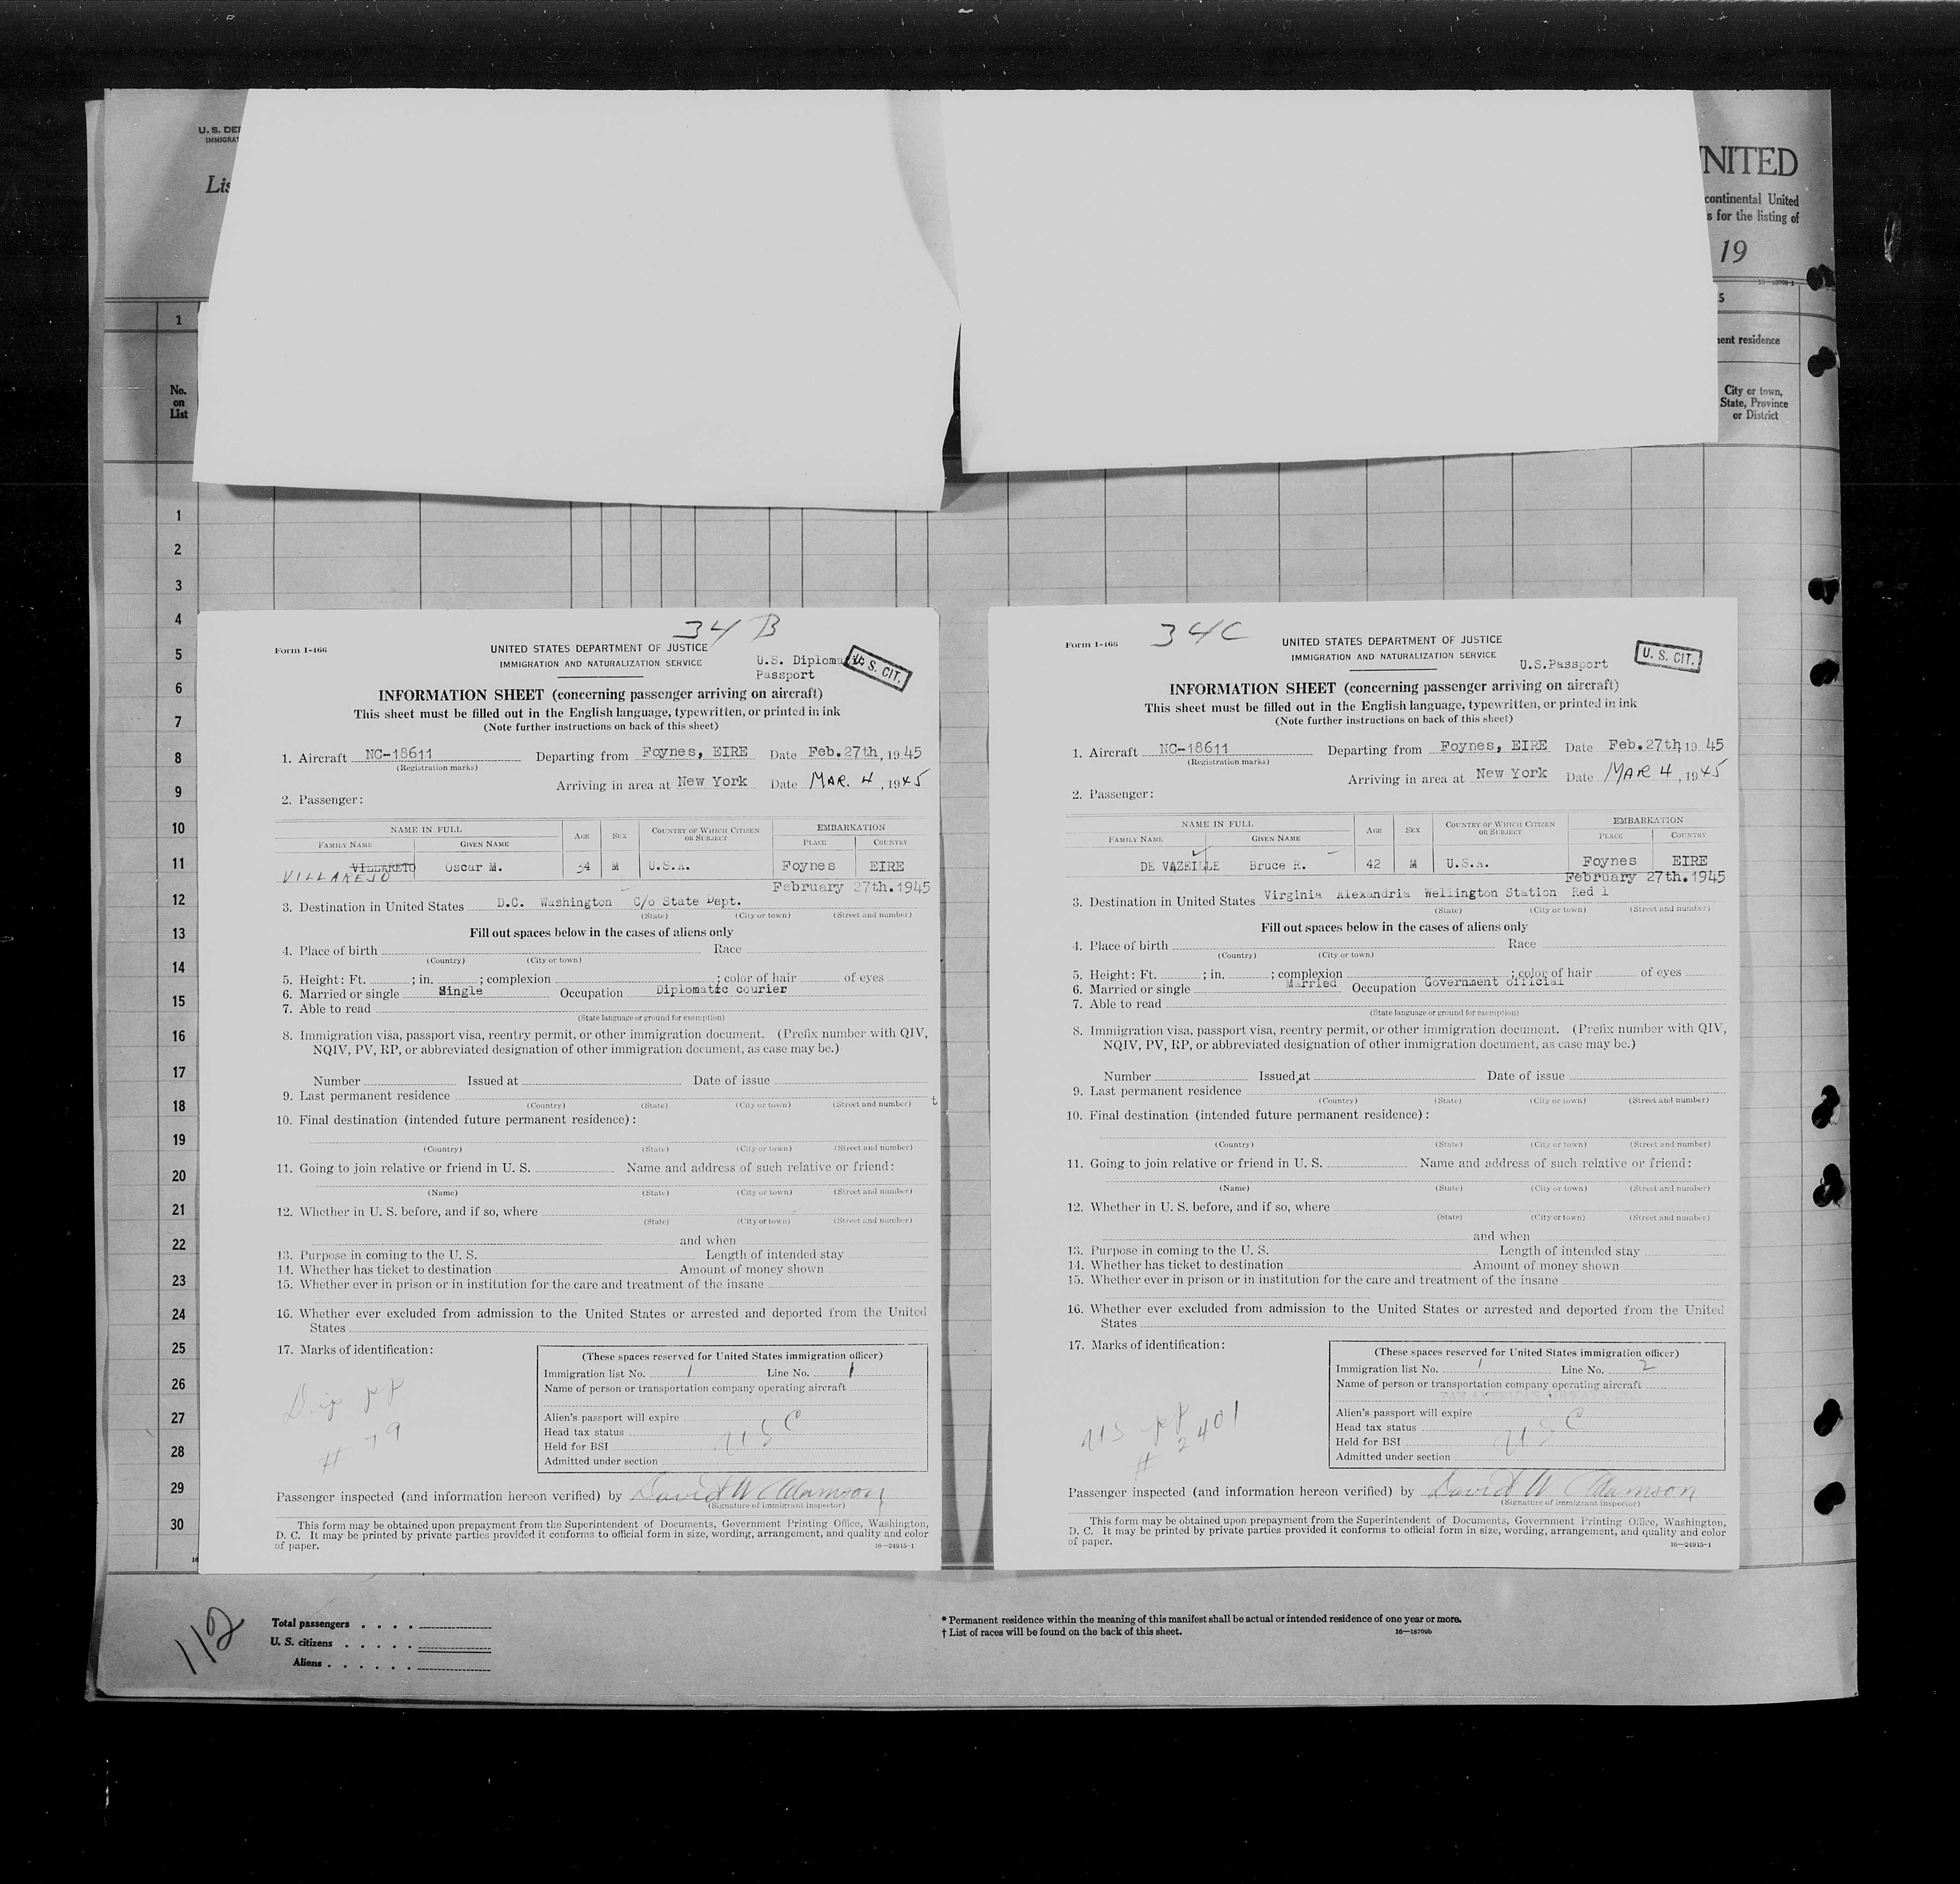 U. S. DE
IMMIGRA
Lis
NITED
continental United
s for the listing of
19
16—18709-1
1
5
nent residence
No.
on
List
City or town,
State, Province
or District
1
2
3
4
5
6
7
8
9
10
11
12
13
14
15
16
17
18
19
20
21
22
23
24
25
26
27
28
29
30
34 B
Form I-466
UNITED STATES DEPARTMENT OF JUSTICE
IMMIGRATION AND NATURALIZATION SERVICE
U.S. Diploma
Passport
U. S. CIT.
INFORMATION SHEET (concerning passenger arriving on aircraft)
This sheet must be filled out in the English language, typewritten, or printed in ink
(Note further instructions on back of this sheet)
1. Aircraft NC-18611 Departing from Foynes, EIRE Date Feb.27th, 1945
(Registration marks)
Arriving in area at New York Date MAR. 4, 1945
2. Passenger:
NAME IN FULL AGE SEX COUNTRY OF WHICH CITIZEN OR SUBJECT EMBARKATION
FAMILY NAME GIVEN NAME PLACE COUNTRY
VILLARETO Oscar M. 34 M U.S.A. Foynes EIRE
VILLAREJO
February 27th.1945
3. Destination in United States D.C. Washington C/o State Dept.
(State) (City or town) (Street and number)
Fill out spaces below in the cases of aliens only
4. Place of birth Race
(Country) (City or town)
5. Height: Ft. ; in. ; complexion ; color of hair of eyes
6. Married or single Single Occupation Diplomatic courier
7. Able to read
(State language or ground for exemption)
8. Immigration visa, passport visa, reentry permit, or other immigration document. (Prefix number with QIV,
NQIV, PV, RP, or abbreviated designation of other immigration document, as case may be.)
Number Issued at Date of issue
9. Last permanent residence
(Country) (State) (City or town) (Street and number) t
10. Final destination (intended future permanent residence):
(Country) (State) (City or town) (Street and number)
11. Going to join relative or friend in U. S. Name and address of such relative or friend:
(Name) (State) (City or town) (Street and number)
12. Whether in U. S. before, and if so, where
(State) (City or town) (Street and number)
and when
13. Purpose in coming to the U. S. Length of intended stay
14. Whether has ticket to destination Amount of money shown
15. Whether ever in prison or in institution for the care and treatment of the insane
16. Whether ever excluded from admission to the United States or arrested and deported from the United
States
17. Marks of identification:
Dip pp
# 79
(These spaces reserved for United States immigration officer)
Immigration list No. 1 Line No. 1
Name of person or transportation company operating aircraft
Alien's passport will expire
Head tax status USC
Held for BSI
Admitted under section
Passenger inspected (and information hereon verified) by David W Adamson
(Signature of immigrant inspector)
This form may be obtained upon prepayment from the Superintendent of Documents, Government Printing Office, Washington,
D. C. It may be printed by private parties provided it conforms to official form in size, wording, arrangement, and quality and color
of paper.
16—24915-1
34C
Form I-466
UNITED STATES DEPARTMENT OF JUSTICE
IMMIGRATION AND NATURALIZATION SERVICE
U.S.Passport
U. S. CIT.
INFORMATION SHEET (concerning passenger arriving on aircraft)
This sheet must be filled out in the English language, typewritten, or printed in ink
(Note further instructions on back of this sheet)
1. Aircraft NC-18611 Departing from Foynes, EIRE Date Feb.27th, 1945
(Registration marks)
Arriving in area at New York Date MAR 4, 1945
2. Passenger:
NAME IN FULL AGE SEX COUNTRY OF WHICH CITIZEN OR SUBJECT EMBARKATION
FAMILY NAME GIVEN NAME PLACE COUNTRY
DE VAZEILLE Bruce R. 42 M U.S.A. Foynes EIRE
February 27th.1945
3. Destination in United States Virginia Alexandria Wellington Station Red 1
(State) (City or town) (Street and number)
Fill out spaces below in the cases of aliens only
4. Place of birth Race
(Country) (City or town)
5. Height: Ft. ; in. ; complexion ; color of hair of eyes
6. Married or single Married Occupation Government official
7. Able to read
(State language or ground for exemption)
8. Immigration visa, passport visa, reentry permit, or other immigration document. (Prefix number with QIV,
NQIV, PV, RP, or abbreviated designation of other immigration document, as case may be.)
Number Issued at Date of issue
9. Last permanent residence
(Country) (State) (City or town) (Street and number)
10. Final destination (intended future permanent residence):
(Country) (State) (City or town) (Street and number)
11. Going to join relative or friend in U. S. Name and address of such relative or friend:
(Name) (State) (City or town) (Street and number)
12. Whether in U. S. before, and if so, where
(State) (City or town) (Street and number)
and when
13. Purpose in coming to the U. S. Length of intended stay
14. Whether has ticket to destination Amount of money shown
15. Whether ever in prison or in institution for the care and treatment of the insane
16. Whether ever excluded from admission to the United States or arrested and deported from the United
States
17. Marks of identification:
US pp
# 2401
(These spaces reserved for United States immigration officer)
Immigration list No. 1 Line No. 2
Name of person or transportation company operating aircraft
PAN AMERICAN
Alien's passport will expire
Head tax status USC
Held for BSI
Admitted under section
Passenger inspected (and information hereon verified) by David W Adamson
(Signature of immigrant inspector)
This form may be obtained upon prepayment from the Superintendent of Documents, Government Printing Office, Washington,
D. C. It may be printed by private parties provided it conforms to official form in size, wording, arrangement, and quality and color
of paper.
16—24915-1
16
112
Total passengers . . . .
U. S. citizens . . . . .
Aliens . . . . . .
* Permanent residence within the meaning of this manifest shall be actual or intended residence of one year or more.
† List of races will be found on the back of this sheet.
16—18709b